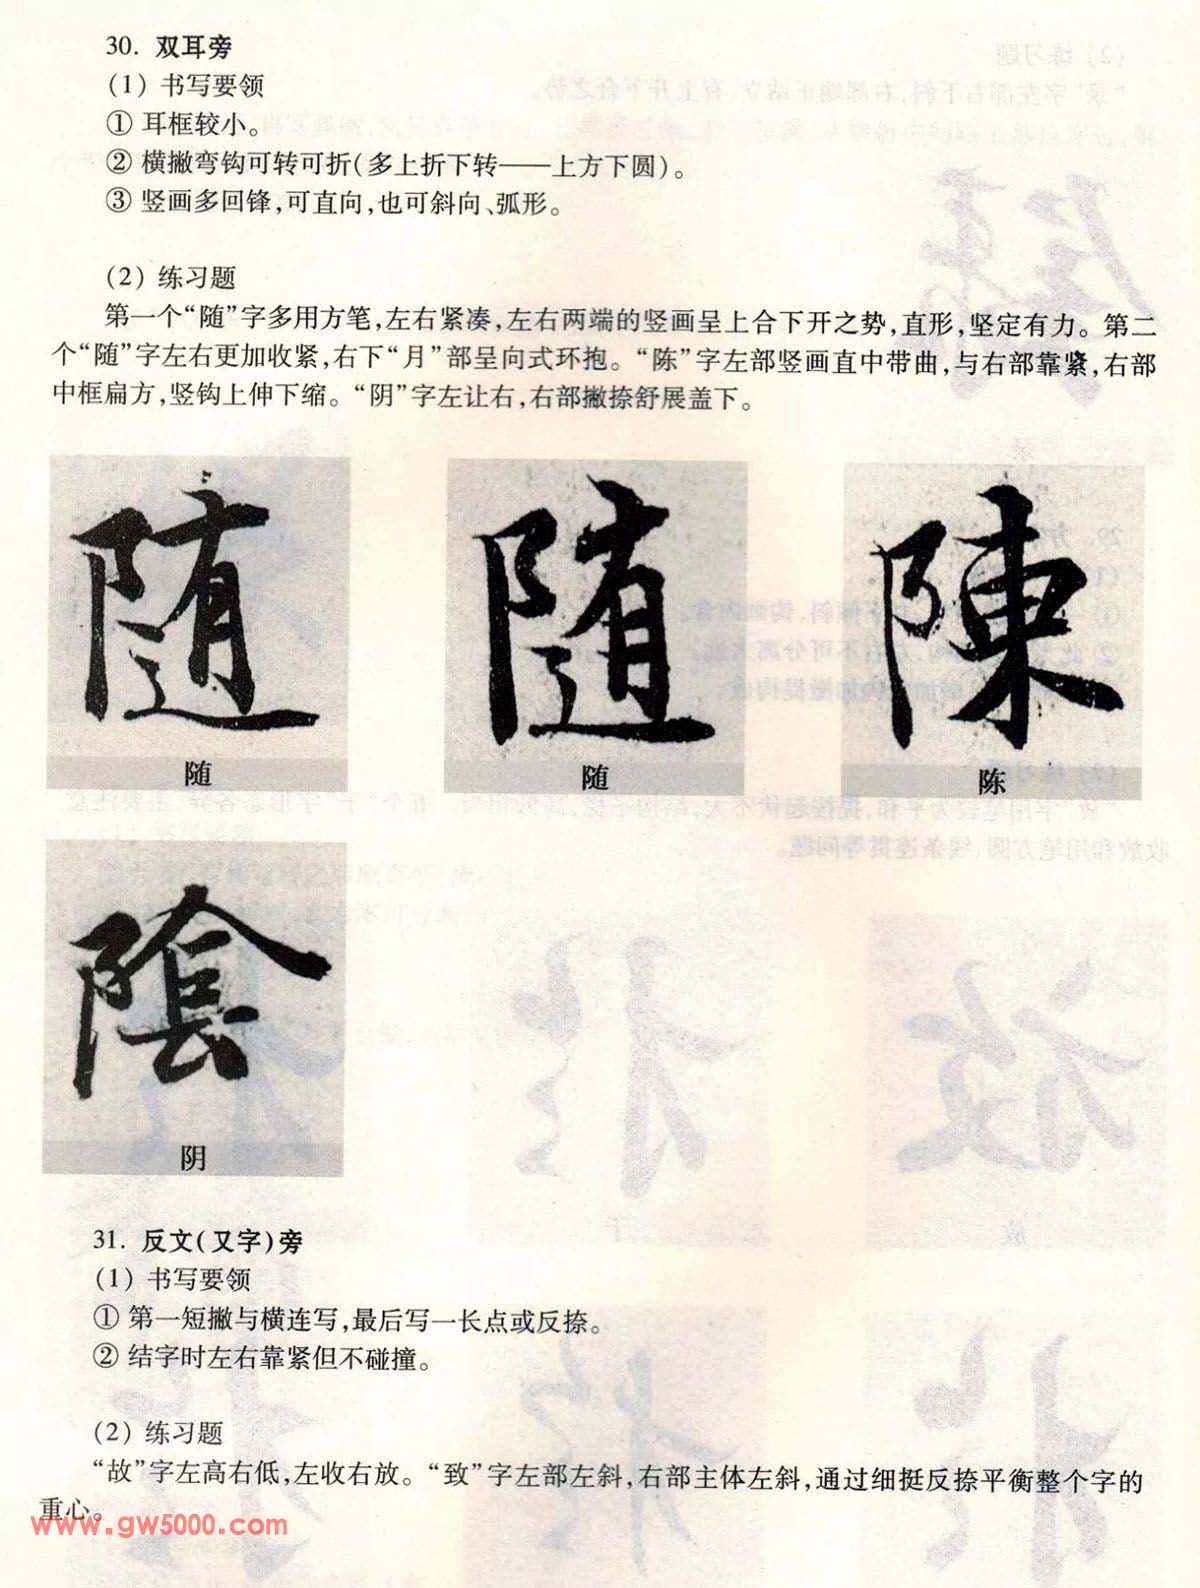 30. 双耳旁
(1) 书写要领
① 耳框较小。
② 横撇弯钩可转可折(多上折下转——上方下圆)。
③ 竖画多回锋,可直向,也可斜向、弧形。
(2) 练习题
第一个“随”字多用方笔,左右紧凑,左右两端的竖画呈上合下开之势,直形,坚定有力。第二
个“随”字左右更加收紧,右下“月”部呈向式环抱。“陈”字左部竖画直中带曲,与右部靠紧,右部
中框扁方,竖钩上伸下缩。“阴”字左让右,右部撇捺舒展盖下。
随 随 陳
随 随 陈
陰
阴
31. 反文(又字)旁
(1) 书写要领
① 第一短撇与横连写,最后写一长点或反捺。
② 结字时左右靠紧但不碰撞。
(2) 练习题
“故”字左高右低,左收右放。“致”字左部左斜,右部主体左斜,通过细挺反捺平衡整个字的
重心。
www.gw5000.com